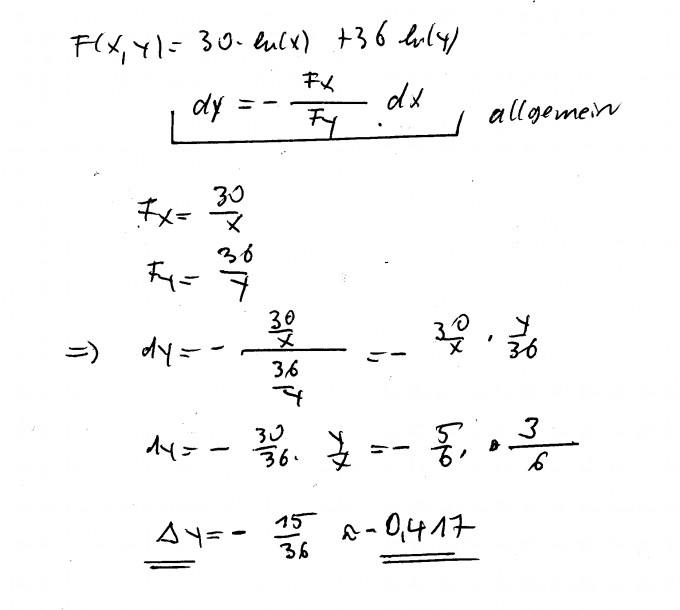 F(x,y) = 30 · ln(x) + 36 ln(y)
dy = - Fx/Fy · dx allgemein
Fx = 30/x
Fy = 36/y
=> dy = - (30/x)/(36/y) = - 30/x · y/36
dy = - 30/36 · y/x = - 5/6 · 3/6
Δy = - 15/36 ≈ - 0,417